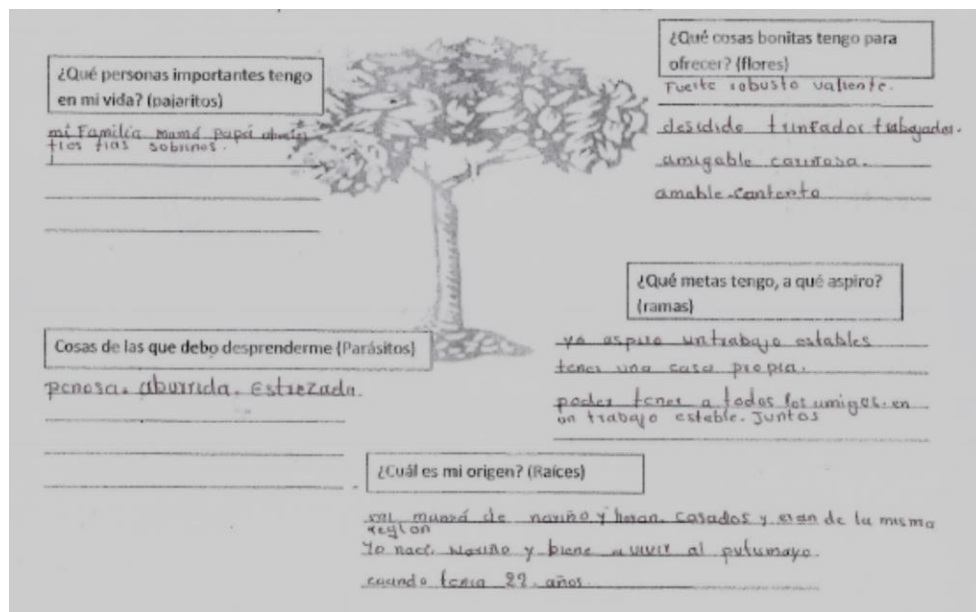 ¿Qué personas importantes tengo
en mi vida? (pajaritos)
mi Familia mamá papá
tios tias sobrinos.
¿Qué cosas bonitas tengo para
ofrecer? (flores)
Fuerte robusto valiente.
desidido trinfador trabajador.
amigable cariñosa.
amable. Contento
¿Qué metas tengo, a qué aspiro?
(ramas)
yo aspiro un trabajo estables
tener una casa propia.
poder tener a todos los amigos. en
un trabajo esteble. Juntos
Cosas de las que debo desprenderme (Parásitos)
penosa. aburrida. Estrezada.
¿Cuál es mi origen? (Raíces)
mi mamá de nariño y heran. Casados y eran de la misma
region
Yo naci. Nariño y biene a vivir al putumayo.
cuando tenia 22. años.